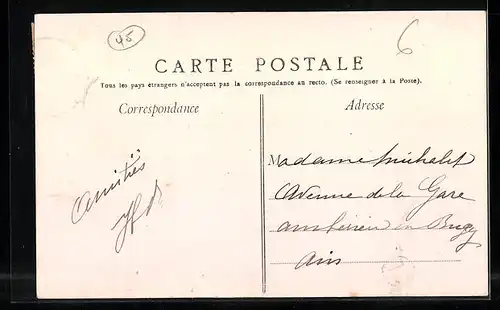 45
6
CARTE POSTALE
Tous les pays étrangers n'acceptent pas la correspondance au recto. (Se renseigner à la Poste).
Correspondance
Adresse
Amitiés
Madame Michelet
Avenue de la Gare
Ambérieu en Bugey
Ain